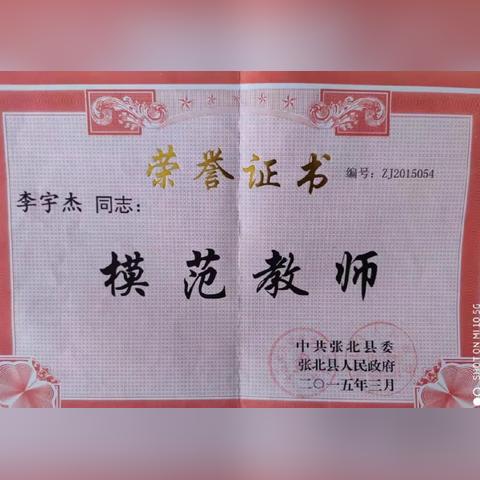 荣誉证书
编号：ZJ2015054
李宇杰 同志：
模范教师
中共张北县委
张北县人民政府
二〇一五年三月
SHOT ON MI 10 5G